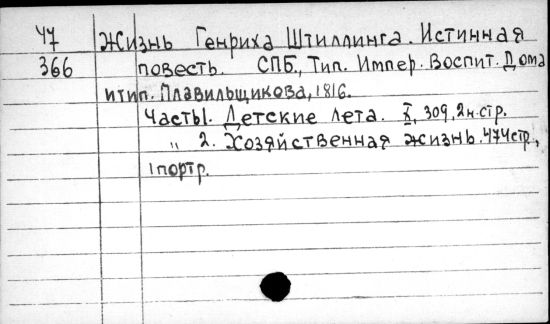 47 Жизнь Генриха Штиллинга. Истинная
366 повесть. СПБ., Тип. Импер. Воспит. Дома
и тип. Плавильщикова, 1816.
Часть 1. Детские лета. X, 309, 2 н. стр.
„ 2. Хозяйственная жизнь. 474 стр.,
1 портр.